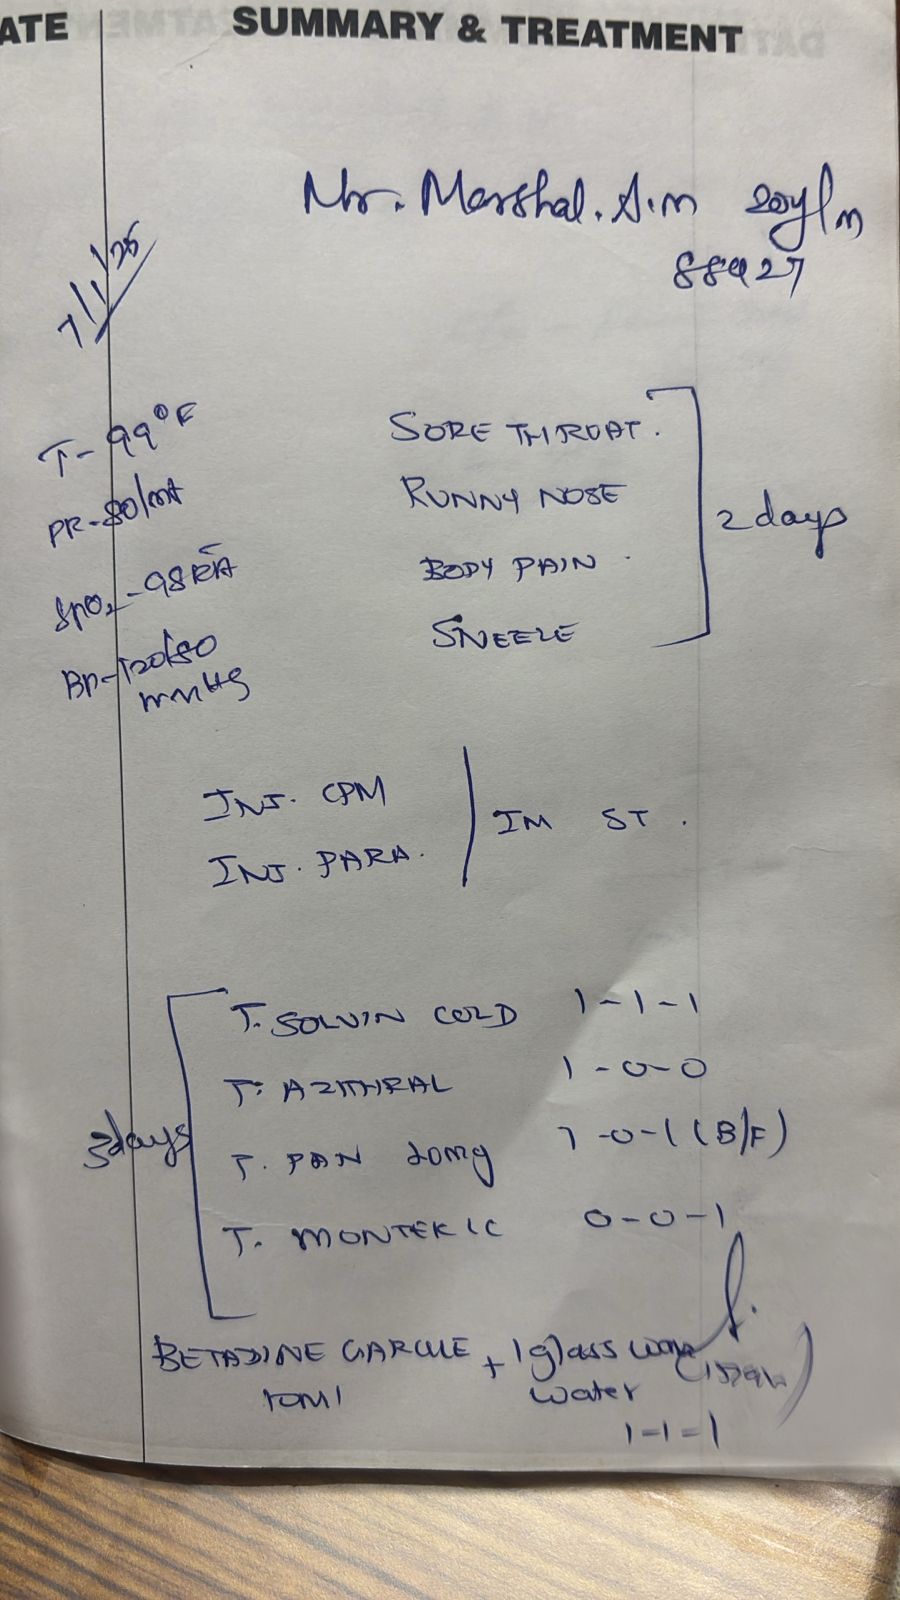 ATE SUMMARY & TREATMENT
Mr. Marshal. A.M 20y/m
88427
7/1/25
T- 99°F
PR-80/mt
SPO2-98 RA
BP-120/80
mmHg
SORE THROAT.
RUNNY NOSE
BODY PAIN
SNEEZE
2 days
INJ. CPM
INJ. PARA.
IM ST.
3days
T. SOLVIN COLD 1-1-1
T. AZITHRAL 1-0-0
T. PAN 20mg 1-0-1 (B/F)
T. MONTEK LC 0-0-1
BETADINE GARGLE + 1 glass
10ml water
1-1-1